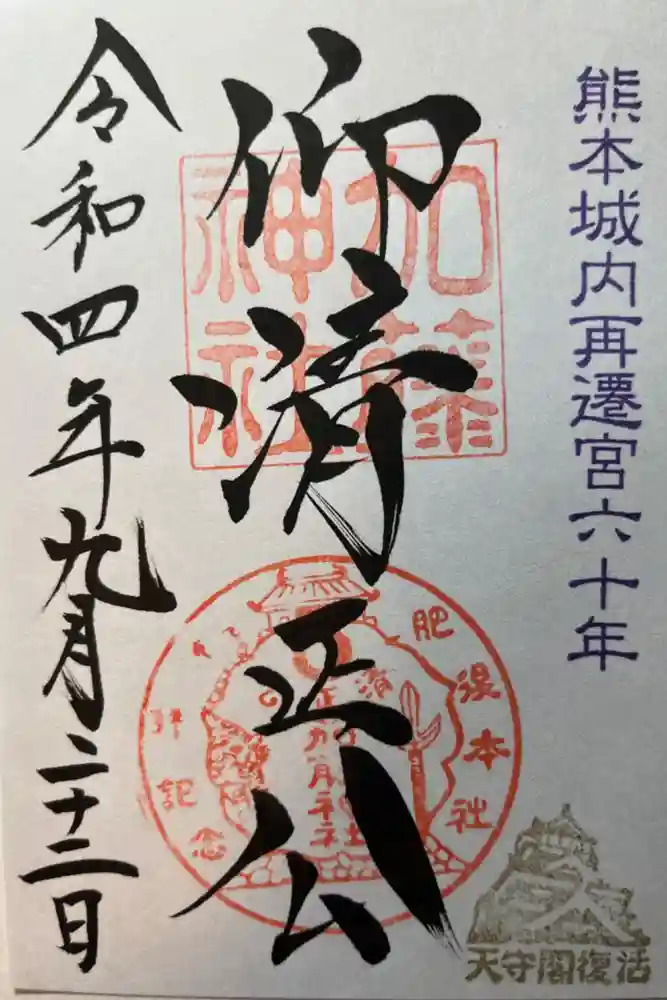 熊本城内再遷宮六十年
仰清正公
加藤
神社
肥後本社
拝記念
令和四年九月二十二日
天守閣復活